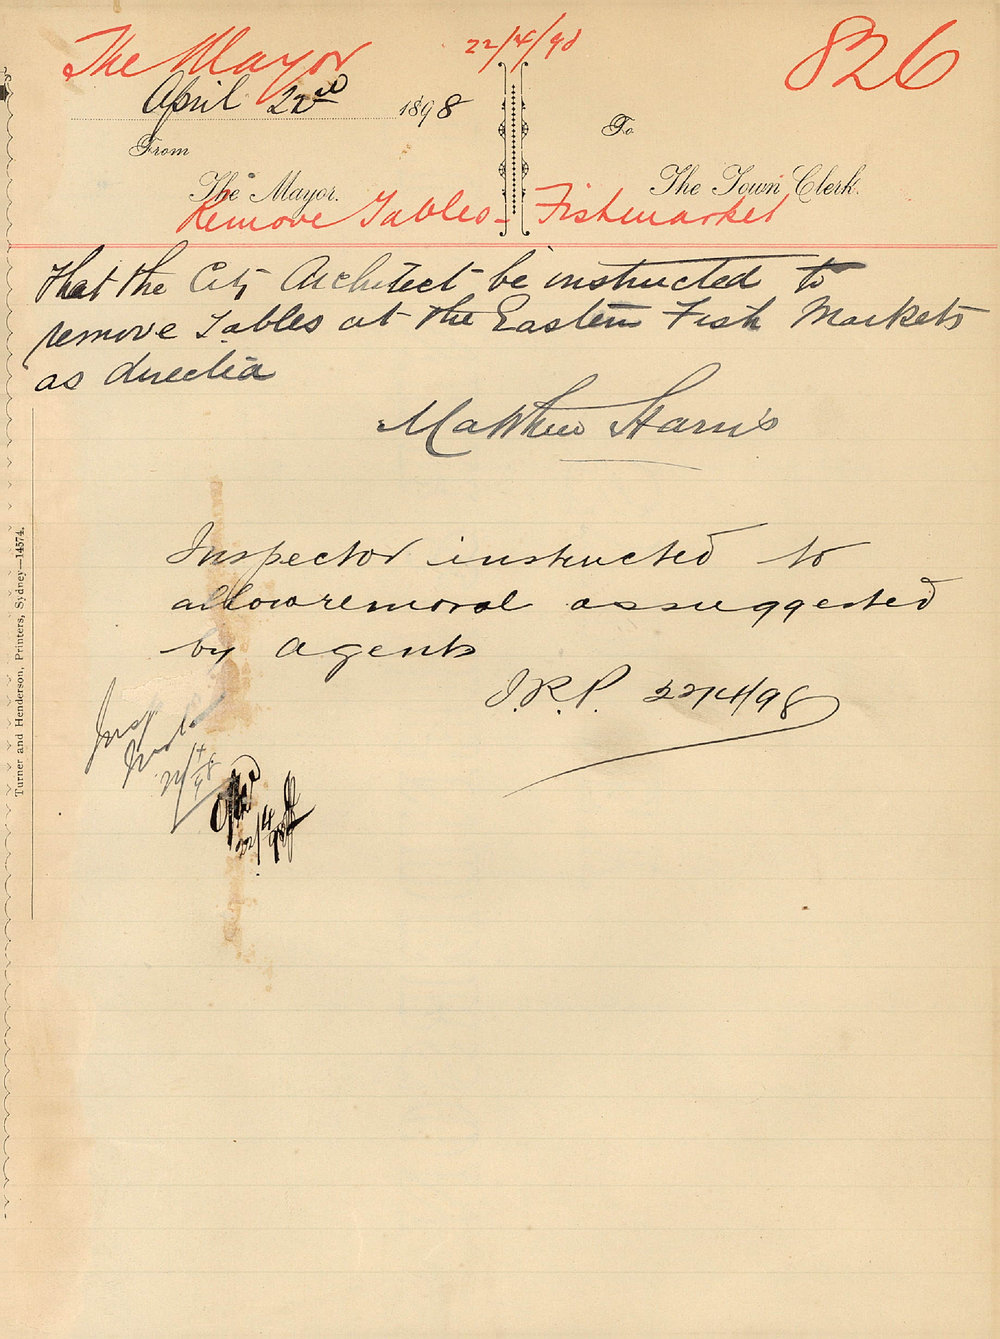 The Mayor
22/4/98
826
April 22nd 1898
From
To
The Mayor.
The Town Clerk.
Remove Tables - Fishmarket
That the City Architect be instructed to
remove Tables at the Eastern Fish Markets
as directed
Matthew Harris
Inspector instructed to
allow removal as suggested
by agents
J.R.P. 22/4/98
Insp
22/4/98
22/4/98
Turner and Henderson, Printers, Sydney—14574.